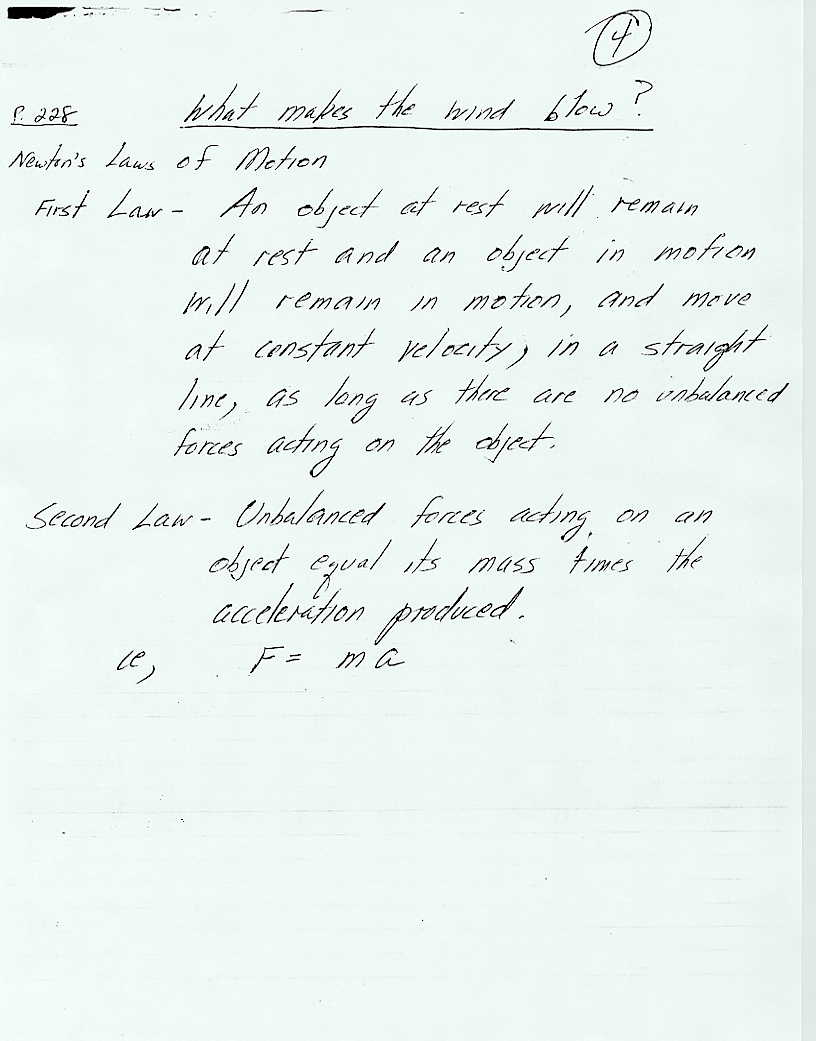 4
P. 228 What makes the wind blow?
Newton's Laws of Motion
First Law - An object at rest will remain
at rest and an object in motion
will remain in motion, and move
at constant velocity, in a straight
line, as long as there are no unbalanced
forces acting on the object.
Second Law - Unbalanced forces acting on an
object equal its mass times the
acceleration produced.
ie, F = ma